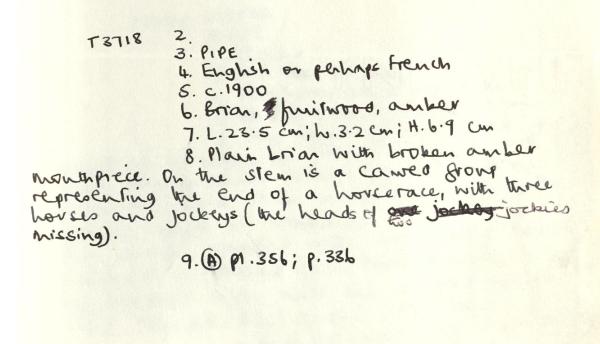 T3718 2.
3. PIPE
4. English or perhaps French
5. c.1900
6. Briar, fruitwood, amber
7. L.23.5 cm; W.3.2 cm; H.6.9 cm
8. Plain briar with broken amber
mouthpiece. On the stem is a carved group
representing the end of a horserace, with three
horses and jockeys (the heads of two jockies
missing).
9. (A) pl.356; p.336